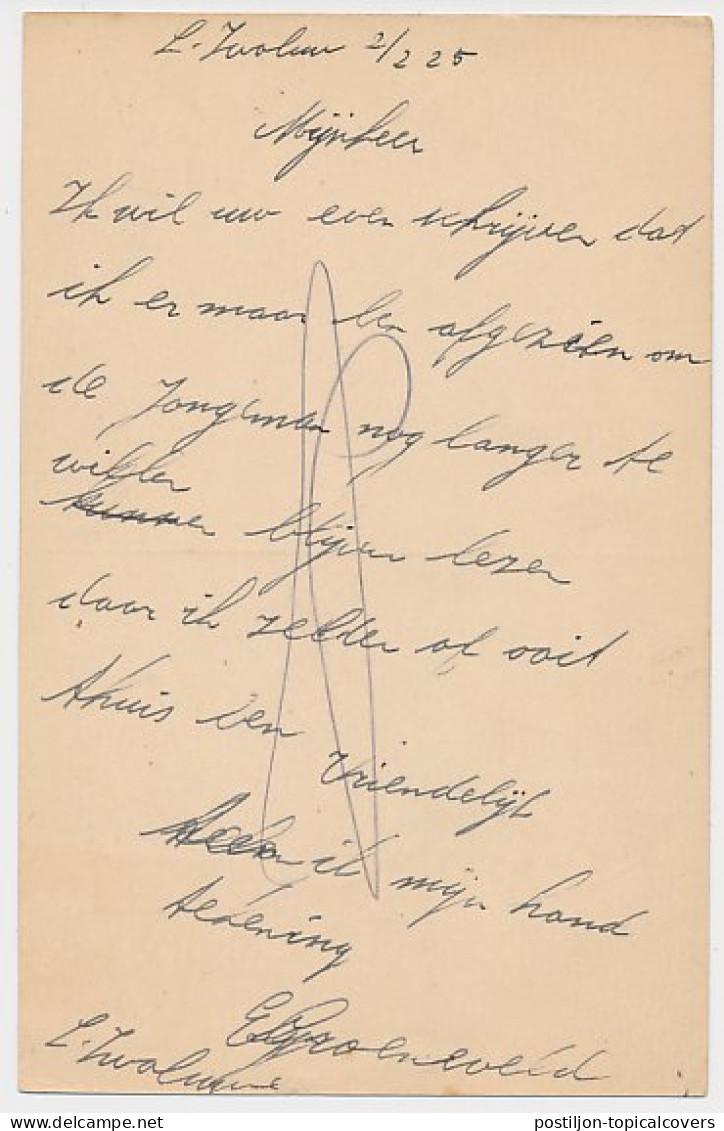 L. Zwoluw 2/2 25
Mijnheer
Ik wil uw even schrijven dat
ik er maar ben afgezien om
de Jongeman nog langer te
willen
kunnen blijven lezen
daar ik zelder of ooit
thuis ben
Vriendelijk
ik mijn hand
tekening
EGroeneveld
L. Zwoluwe
postiljon-topicalcovers